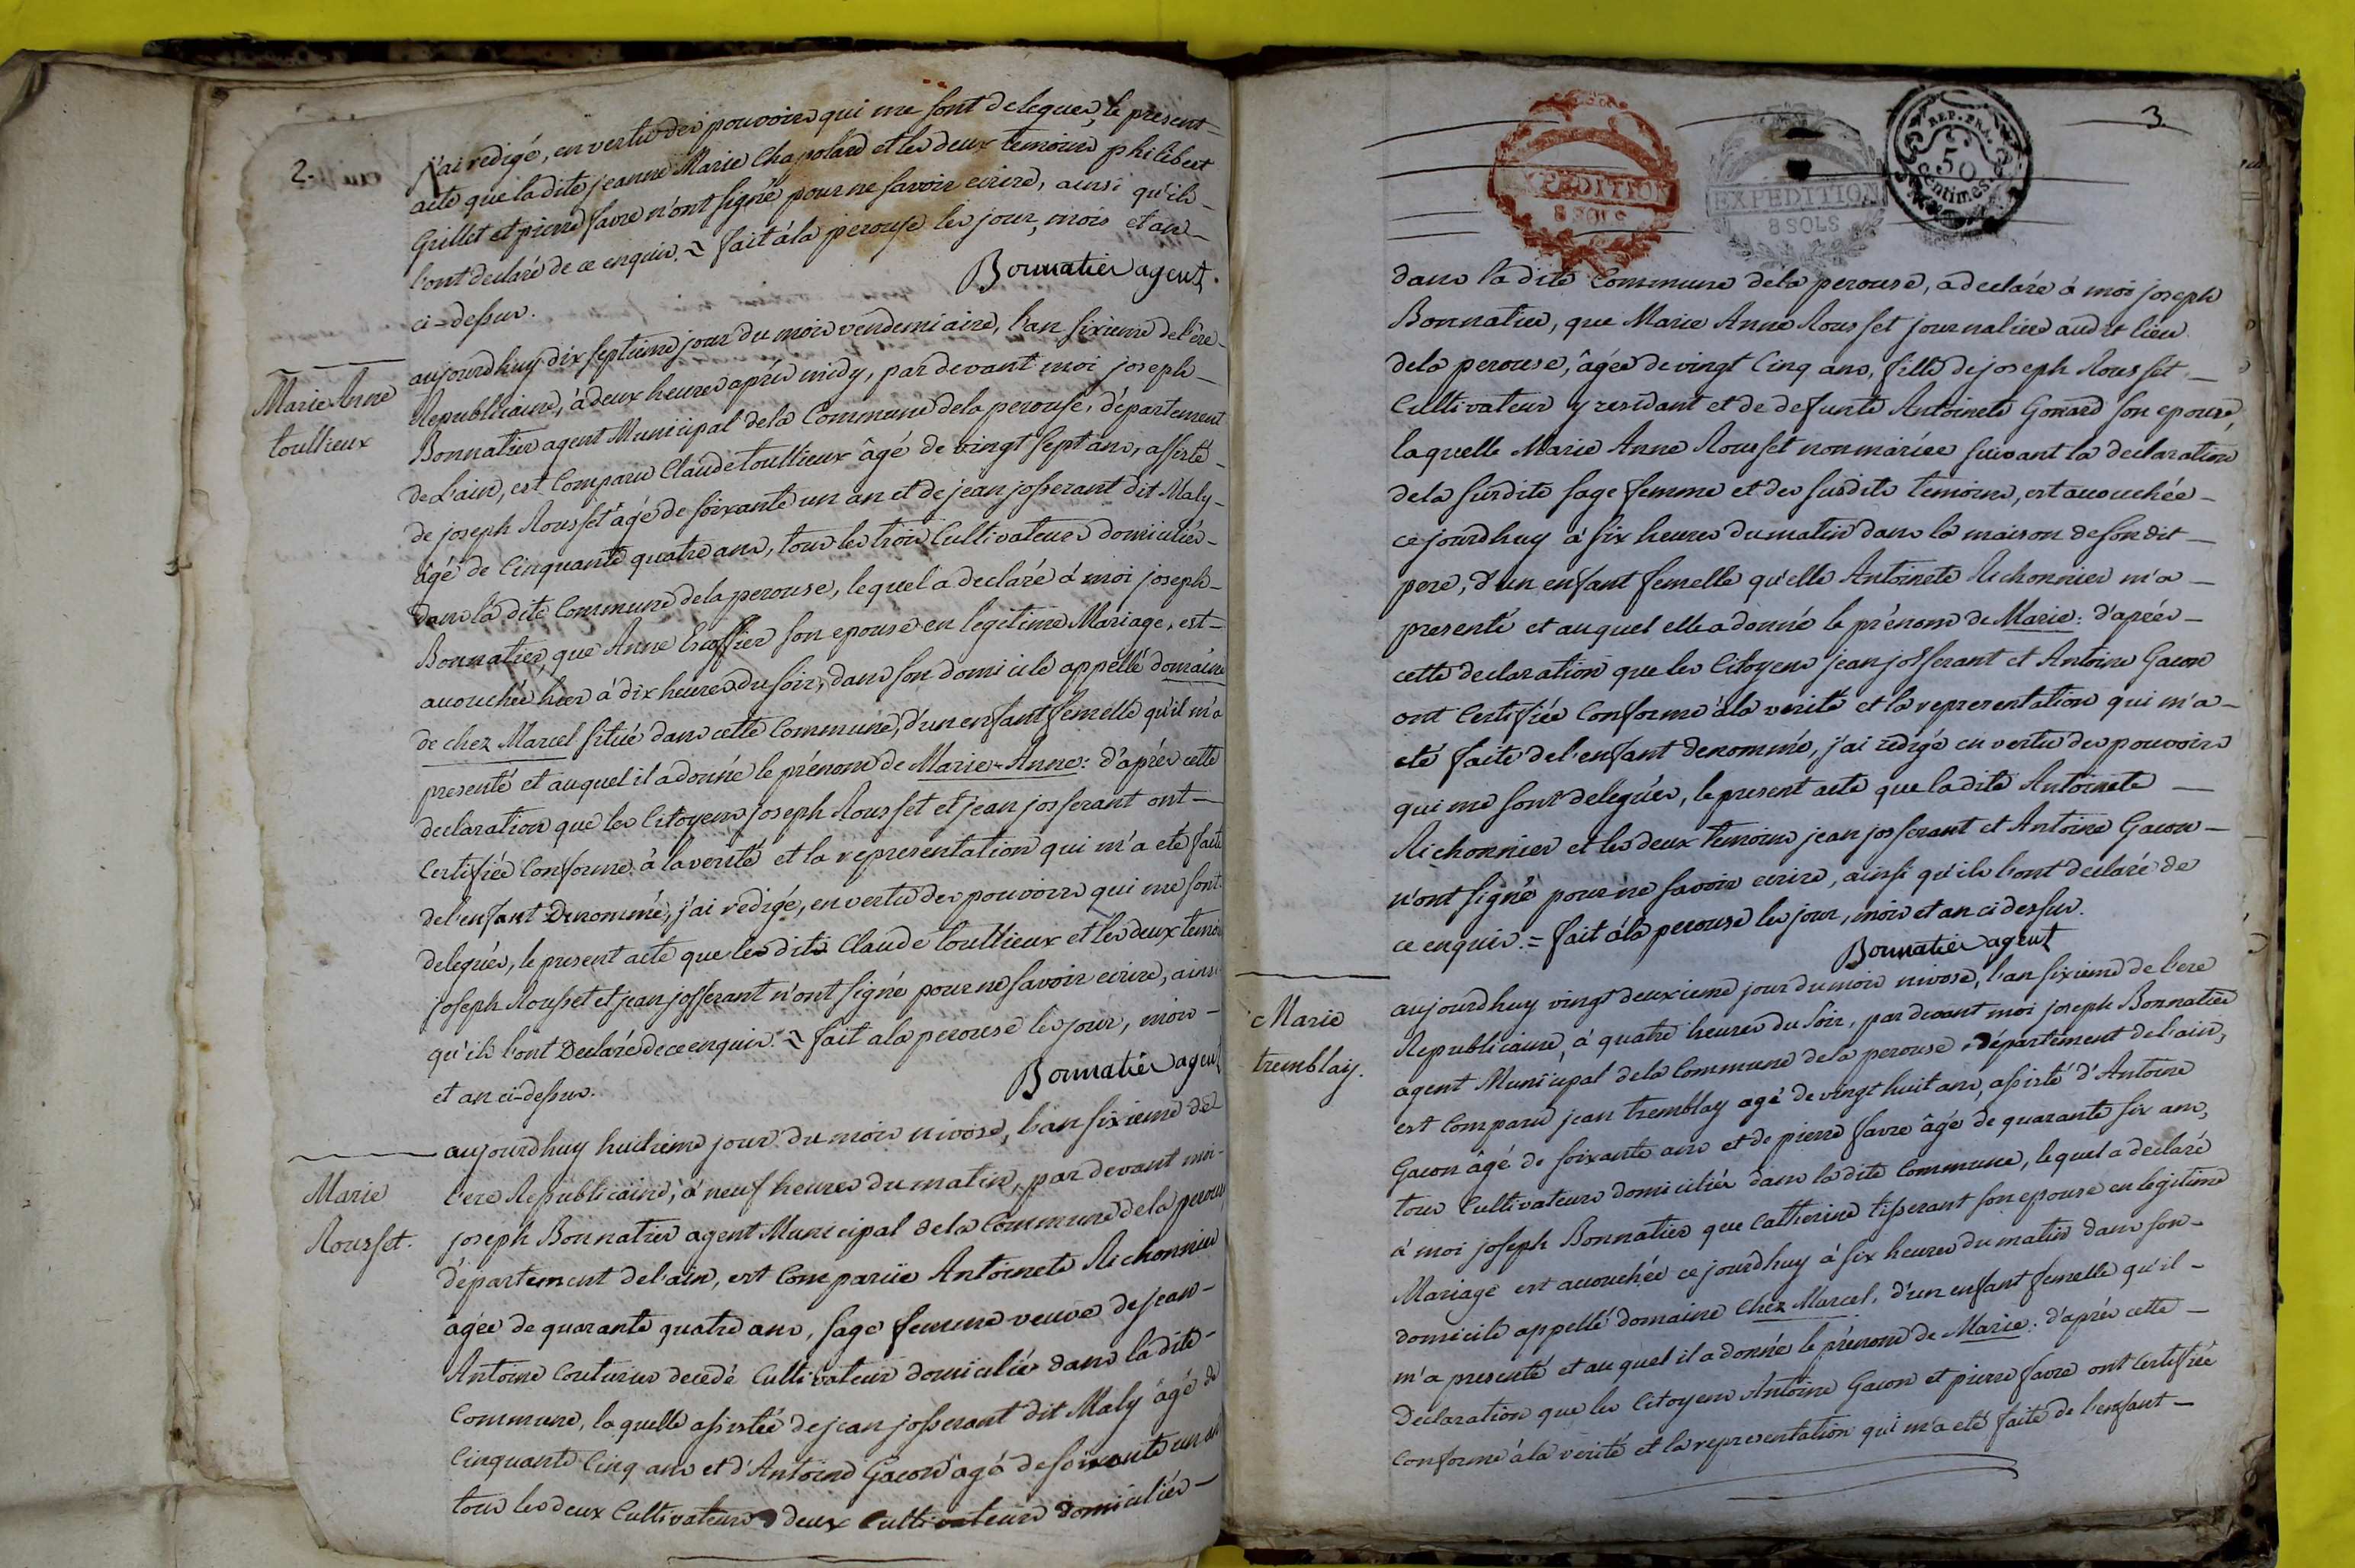 2.
j'ai redigé, en vertu des pouvoirs qui me sont delegués, le present=
acte que la dite jeanne Marie Chapolard et les deux temoins philibert
Grillet et pierre favre n'ont signé pour ne savoir ecrire, ainsi qu'ils
l'ont declaré de ce enquis. = fait à la perouse les jour, mois et an
ci=dessus.
Bonnatier agent.
Marie Anne
toullieux
aujourdhuy dix septieme jour du mois vendemiaire, l'an sixieme de l'ère
Republicaine, à deux heures après midy, par devant moi joseph
Bonnatier agent Municipal de la Commune de la perouse, département
de l'ain, est Comparu Claude toullieux âgé de vingt sept ans, assisté
de joseph Rousset âgé de soixante un an et de jean josserant dit Maly
âgé de Cinquante quatre ans, tous les trois Cultivateurs domiciliés
dans la dite Commune de la perouse, lequel a declaré à moi joseph
Bonnatier, que Anne Escoffier son epouse en legitime Mariage, est
accouchée hier à dix heures du soir, dans son domicile appellé domaine
de chez Marcel situé dans cette Commune, d'un enfant femelle qu'il m'a
presenté et auquel il a donné le prénom de Marie-Anne: d'après cette
declaration que les Citoyens joseph Rousset et jean josserant ont
Certifiée Conforme à la verité et la representation qui m'a eté faite
de l'enfant Denommé, j'ai redigé, en vertu des pouvoirs qui me sont
delegués, le present acte que les dits Claude toullieux et les deux temoins
joseph Rousset et jean josserant n'ont signé pour ne savoir ecrire, ainsi
qu'ils l'ont Declaré de ce enquis. = fait a la perouse les jour, mois
et an ci-dessus.
Bonnatier agent
Marie
Rousset.
aujourdhuy huitieme jour du mois nivose, l'an sixieme de
l'ere Republicaine, à neuf heures du matin, par devant moi
joseph Bonnatier agent Municipal de la Commune de la perouse,
département de l'ain, est Comparüe Antoinete Richonnier
agée de quarante quatre ans, sage femme veuve de jean
Antoine Couturier decedé Cultivateur domiciliée dans la dite
Commune, la quelle assistée de jean josserant dit Maly âgé de
Cinquante Cinq ans et d'Antoine Gacon agé de soixante un an
tous les deux Cultivateurs deux Cultivateurs domiciliés
3.
EXPEDITION
8 SOLS
EXPEDITION
8 SOLS
REP. FRA.
50
Centimes.
dans la dite Commune de la perouse, a declaré à moi joseph
Bonnatier, que Marie Anne Rousset journaliere audit lieu
de la perouse, âgée de vingt Cinq ans, fille de joseph Rousset
Cultivateur y residant et de defunte Antoinete Gonard son epouse,
laquelle Marie Anne Rousset non mariée suivant la declaration
de la susdite sage femme et des susdits temoins, est accouchée
ce jourdhuy à six heures du matin dans la maison de son dit
pere, d'un enfant femelle qu'elle Antoinete Richonnier m'a
presenté et auquel elle a donné le prénom de Marie: d'après
cette declaration que les Citoyens jean josserant et Antoine Gacon
ont Certifiée Conforme à la verité et la representation qui m'a
eté faite de l'enfant denommé, j'ai redigé en vertu des pouvoirs
qui me sont delegués, le present acte que la dite Antoinete
Richonnier et les deux temoins jean josserant et Antoine Gacon
n'ont signé pour ne savoir ecrire, ainsi qu'ils l'ont declaré de
ce enquis. = fait à la perouse les jour, mois et an ci dessus.
Bonnatier agent
Marie
tremblay.
aujourdhuy vingt deuxieme jour du mois nivose, l'an sixieme de l'ere
Republicaine, à quatre heures du soir, par devant moi joseph Bonnatier
agent Municipal de la Commune de la perouse, département de l'ain,
est Comparu jean tremblay agé de vingt huit ans, assisté d'Antoine
Gacon âgé de soixante ans et de pierre favre âgé de quarante six ans,
tous Cultivateurs domiciliés dans la dite Commune, lequel a declaré
à moi joseph Bonnatier que Catherine tisserant son epouse en legitime
Mariage est accouchée ce jourdhuy à six heures du matin dans son
domicile appellé domaine Chez Marcel, d'un enfant femelle qu'il
m'a presenté et au quel il a donné le prénom de Marie: d'après cette
Declaration que les Citoyens Antoine Gacon et pierre favre ont Certifiée
Conforme à la verité et la representation qui m'a eté faite de l'enfant